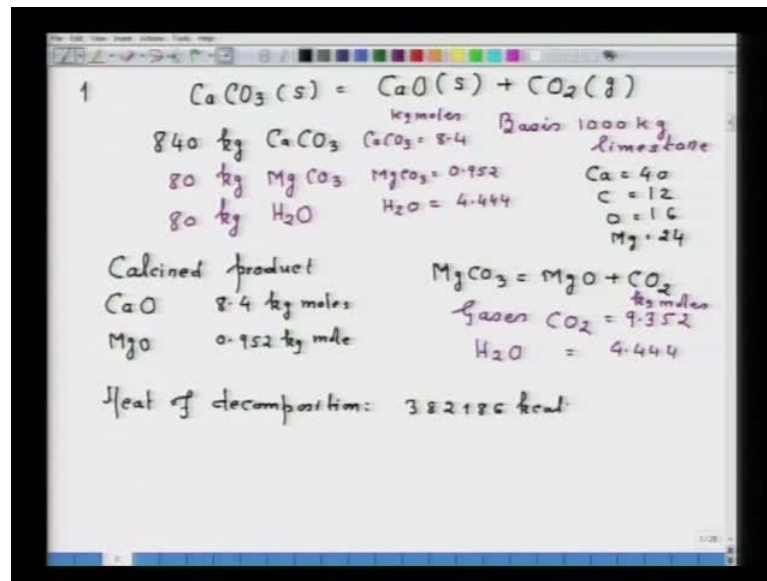 1 CaCO3(s) = CaO(s) + CO2(g)
kg moles Basis 1000 kg limestone
840 kg CaCO3 CaCO3 = 8.4
80 kg MgCO3 MgCO3 = 0.952
80 kg H2O H2O = 4.444
Ca = 40
C = 12
O = 16
Mg = 24
Calcined product
CaO 8.4 kg moles
MgO 0.952 kg mole
MgCO3 = MgO + CO2
kg moles
Gases CO2 = 9.352
H2O = 4.444
Heat of decomposition: 382186 kcal